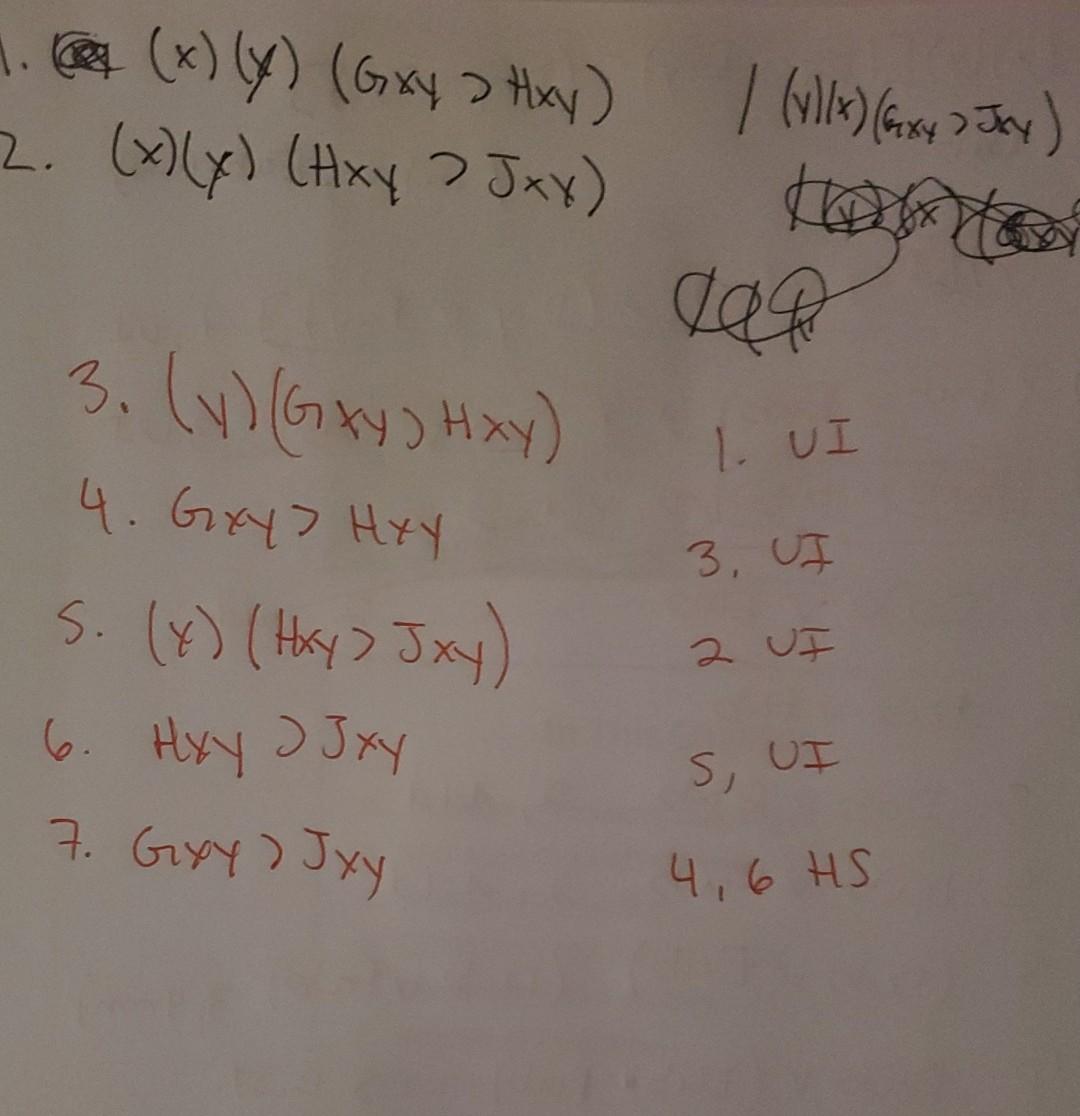 1. (x) (y) (Gxy ⊃ Hxy) / (y)(x)(Gxy ⊃ Jxy)
2. (x)(y) (Hxy ⊃ Jxy)
3. (y)(Gxy ⊃ Hxy) 1. UI
4. Gxy ⊃ Hxy 3, UI
5. (y) (Hxy ⊃ Jxy) 2 UI
6. Hxy ⊃ Jxy 5, UI
7. Gxy ⊃ Jxy 4, 6 HS